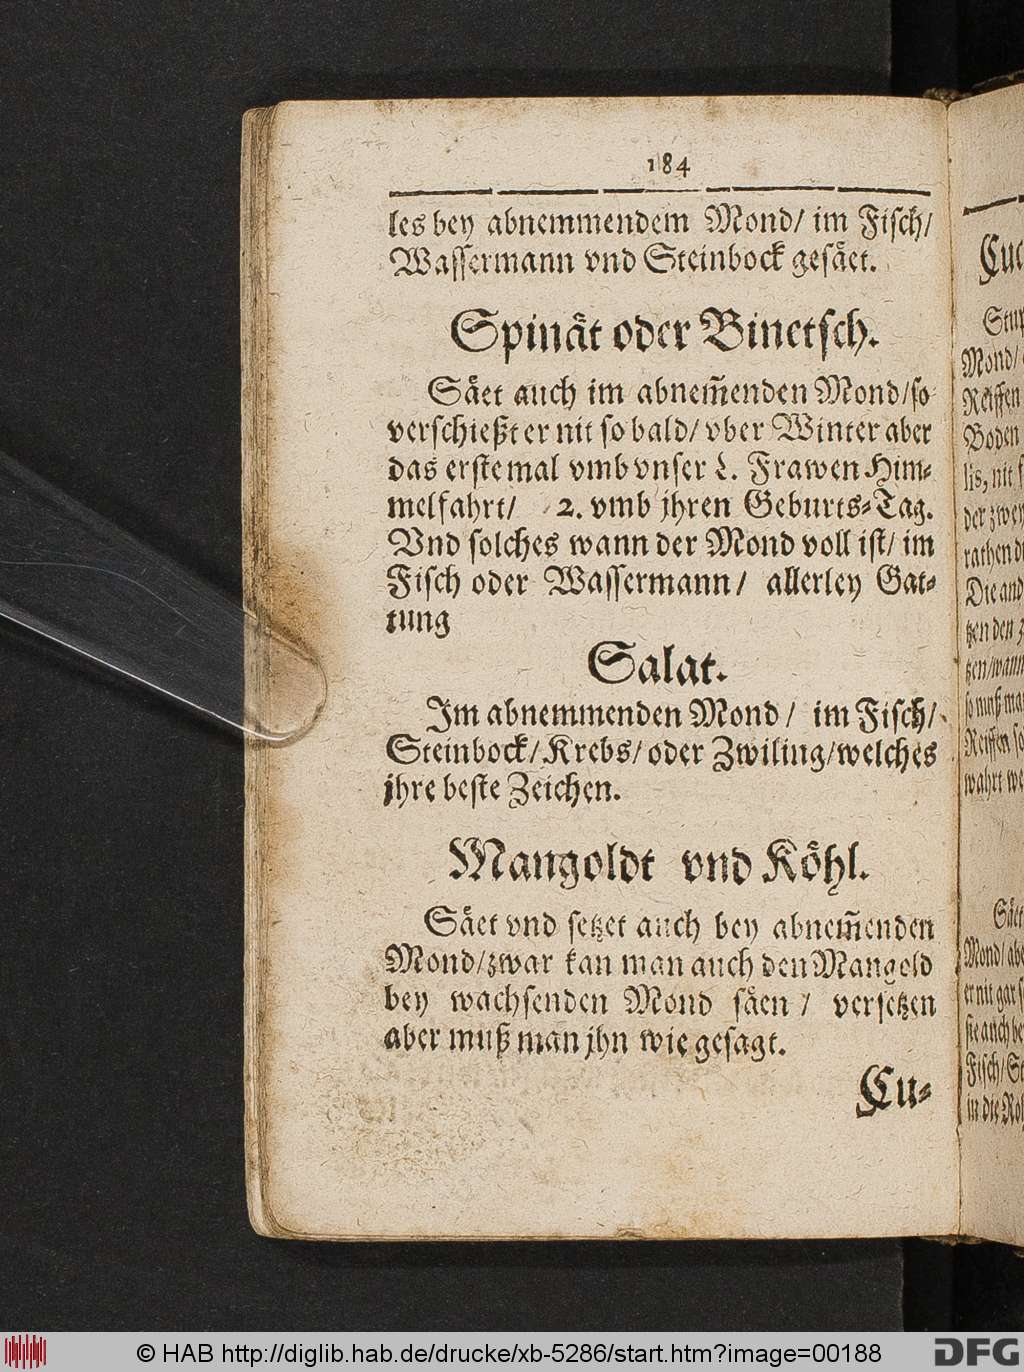 184
les bey abnemmendem Mond/ im Fisch/
Wassermann vnd Steinbock gesäet.
Spinät oder Binetsch.
Säet auch im abnem̃enden Mond/so
verschießt er nit so bald/ vber Winter aber
das erste mal vmb vnser L. Frawen Him-
melfahrt/ 2. vmb jhren Geburts-Tag.
Vnd solches wann der Mond voll ist/ im
Fisch oder Wassermann/ allerley Gat-
tung
Salat.
Im abnemmenden Mond/ im Fisch/
Steinbock/Krebs/oder Zwiling/welches
jhre beste Zeichen.
Mangoldt vnd Köhl.
Säet vnd setzet auch bey abnem̃enden
Mond/zwar kan man auch den Mangold
bey wachsenden Mond säen/ versetzen
aber muß man jhn wie gesagt.
Cu-
Mond/
Reiffen
Boden
lis, nit
der zwey
rathen
Die
Reiffen
Säet
Mond/
er nit gar
sie auch
Fisch/
in die
© HAB http://diglib.hab.de/drucke/xb-5286/start.htm?image=00188
DFG